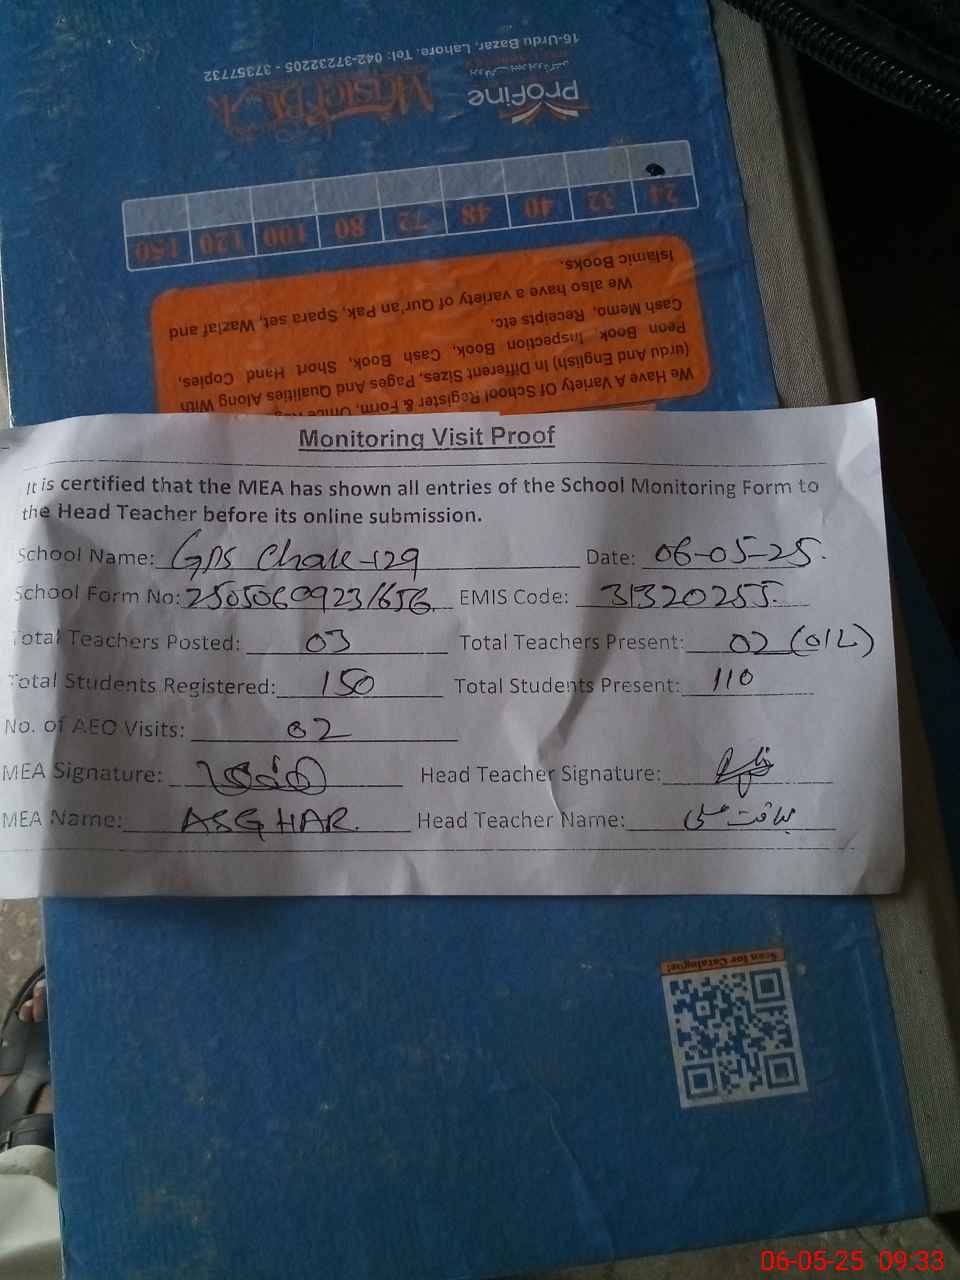 16-Urdu Bazar, Lahore. Tel: 042-37232205 - 37357732
ProFine
24 32 40 48 72 80 100 120 150
We Have A Variety Of School Register & Form, Office
(urdu And English) In Different Sizes, Pages And Qualities Along With
Peon Book, Inspection Book, Cash Book, Short Hand Copies,
Cash Memo, Receipts etc.
We also have a variety of Qur'an Pak, Spara set, Waziaf and
Islamic Books.
Monitoring Visit Proof
It is certified that the MEA has shown all entries of the School Monitoring Form to
the Head Teacher before its online submission.
School Name: GPS Chak-129 Date: 06-05-25.
School Form No: 25050609231656 EMIS Code: 31320255
Total Teachers Posted: 03 Total Teachers Present: 02 (01L)
Total Students Registered: 150 Total Students Present: 110
No. of AEO Visits: 02
MEA Signature: Head Teacher Signature:
MEA Name: ASGHAR. Head Teacher Name: لیاقت علی
Scan for Catalogue!
06-05-25 09:33